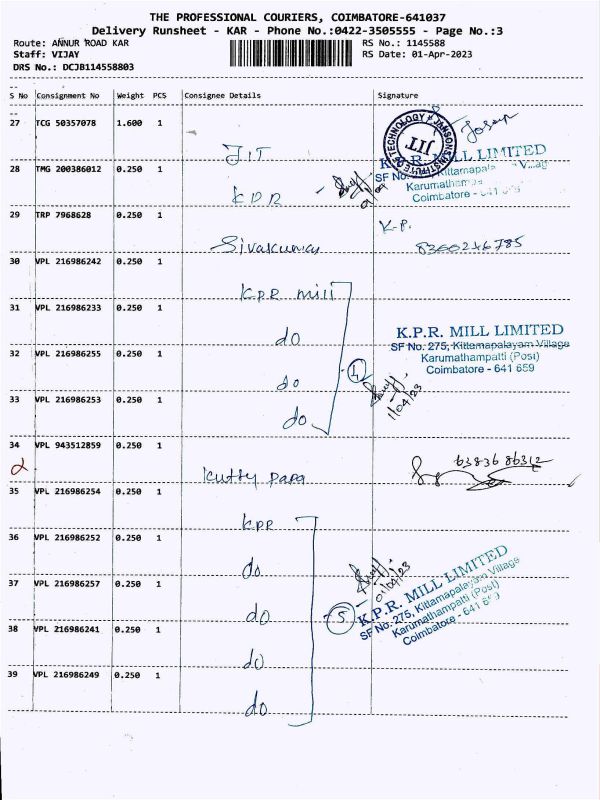 THE PROFESSIONAL COURIERS, COIMBATORE-641037
Delivery Runsheet - KAR - Phone No.:0422-3505555 - Page No.:3
Route: ANNUR ROAD KAR RS No.: 1145588
Staff: VIJAY RS Date: 01-Apr-2023
DRS No.: DCJB114558803
S No Consignment No Weight PCS Consignee Details Signature
27 TCG 50357078 1.600 1 JIT
JANSONS INSTITUTE OF TECHNOLOGY JIT
28 TMG 200386012 0.250 1 KPR
K.P.R. MILL LIMITED
SF No. Kittamapala
Karumathampa
Coimbatore - 641
29 TRP 7968628 0.250 1 Sivakumar K.P.
30 VPL 216986242 0.250 1 KPR mill
31 VPL 216986233 0.250 1 do
K.P.R. MILL LIMITED
SF No. 275, Kittamapalayam Village
Karumathampatti (Post)
Coimbatore - 641 659
32 VPL 216986255 0.250 1 do
4
1/04/23
33 VPL 216986253 0.250 1 do
34 VPL 943512859 0.250 1 Kutty papa
35 VPL 216986254 0.250 1 KPR
36 VPL 216986252 0.250 1 do
01/04/23
37 VPL 216986257 0.250 1 do
5
K.P.R. MILL LIMITED
SF No. 275, Kittamapalayam Village
Karumathampatti (Post)
Coimbatore - 641 659
38 VPL 216986241 0.250 1 do
39 VPL 216986249 0.250 1 do